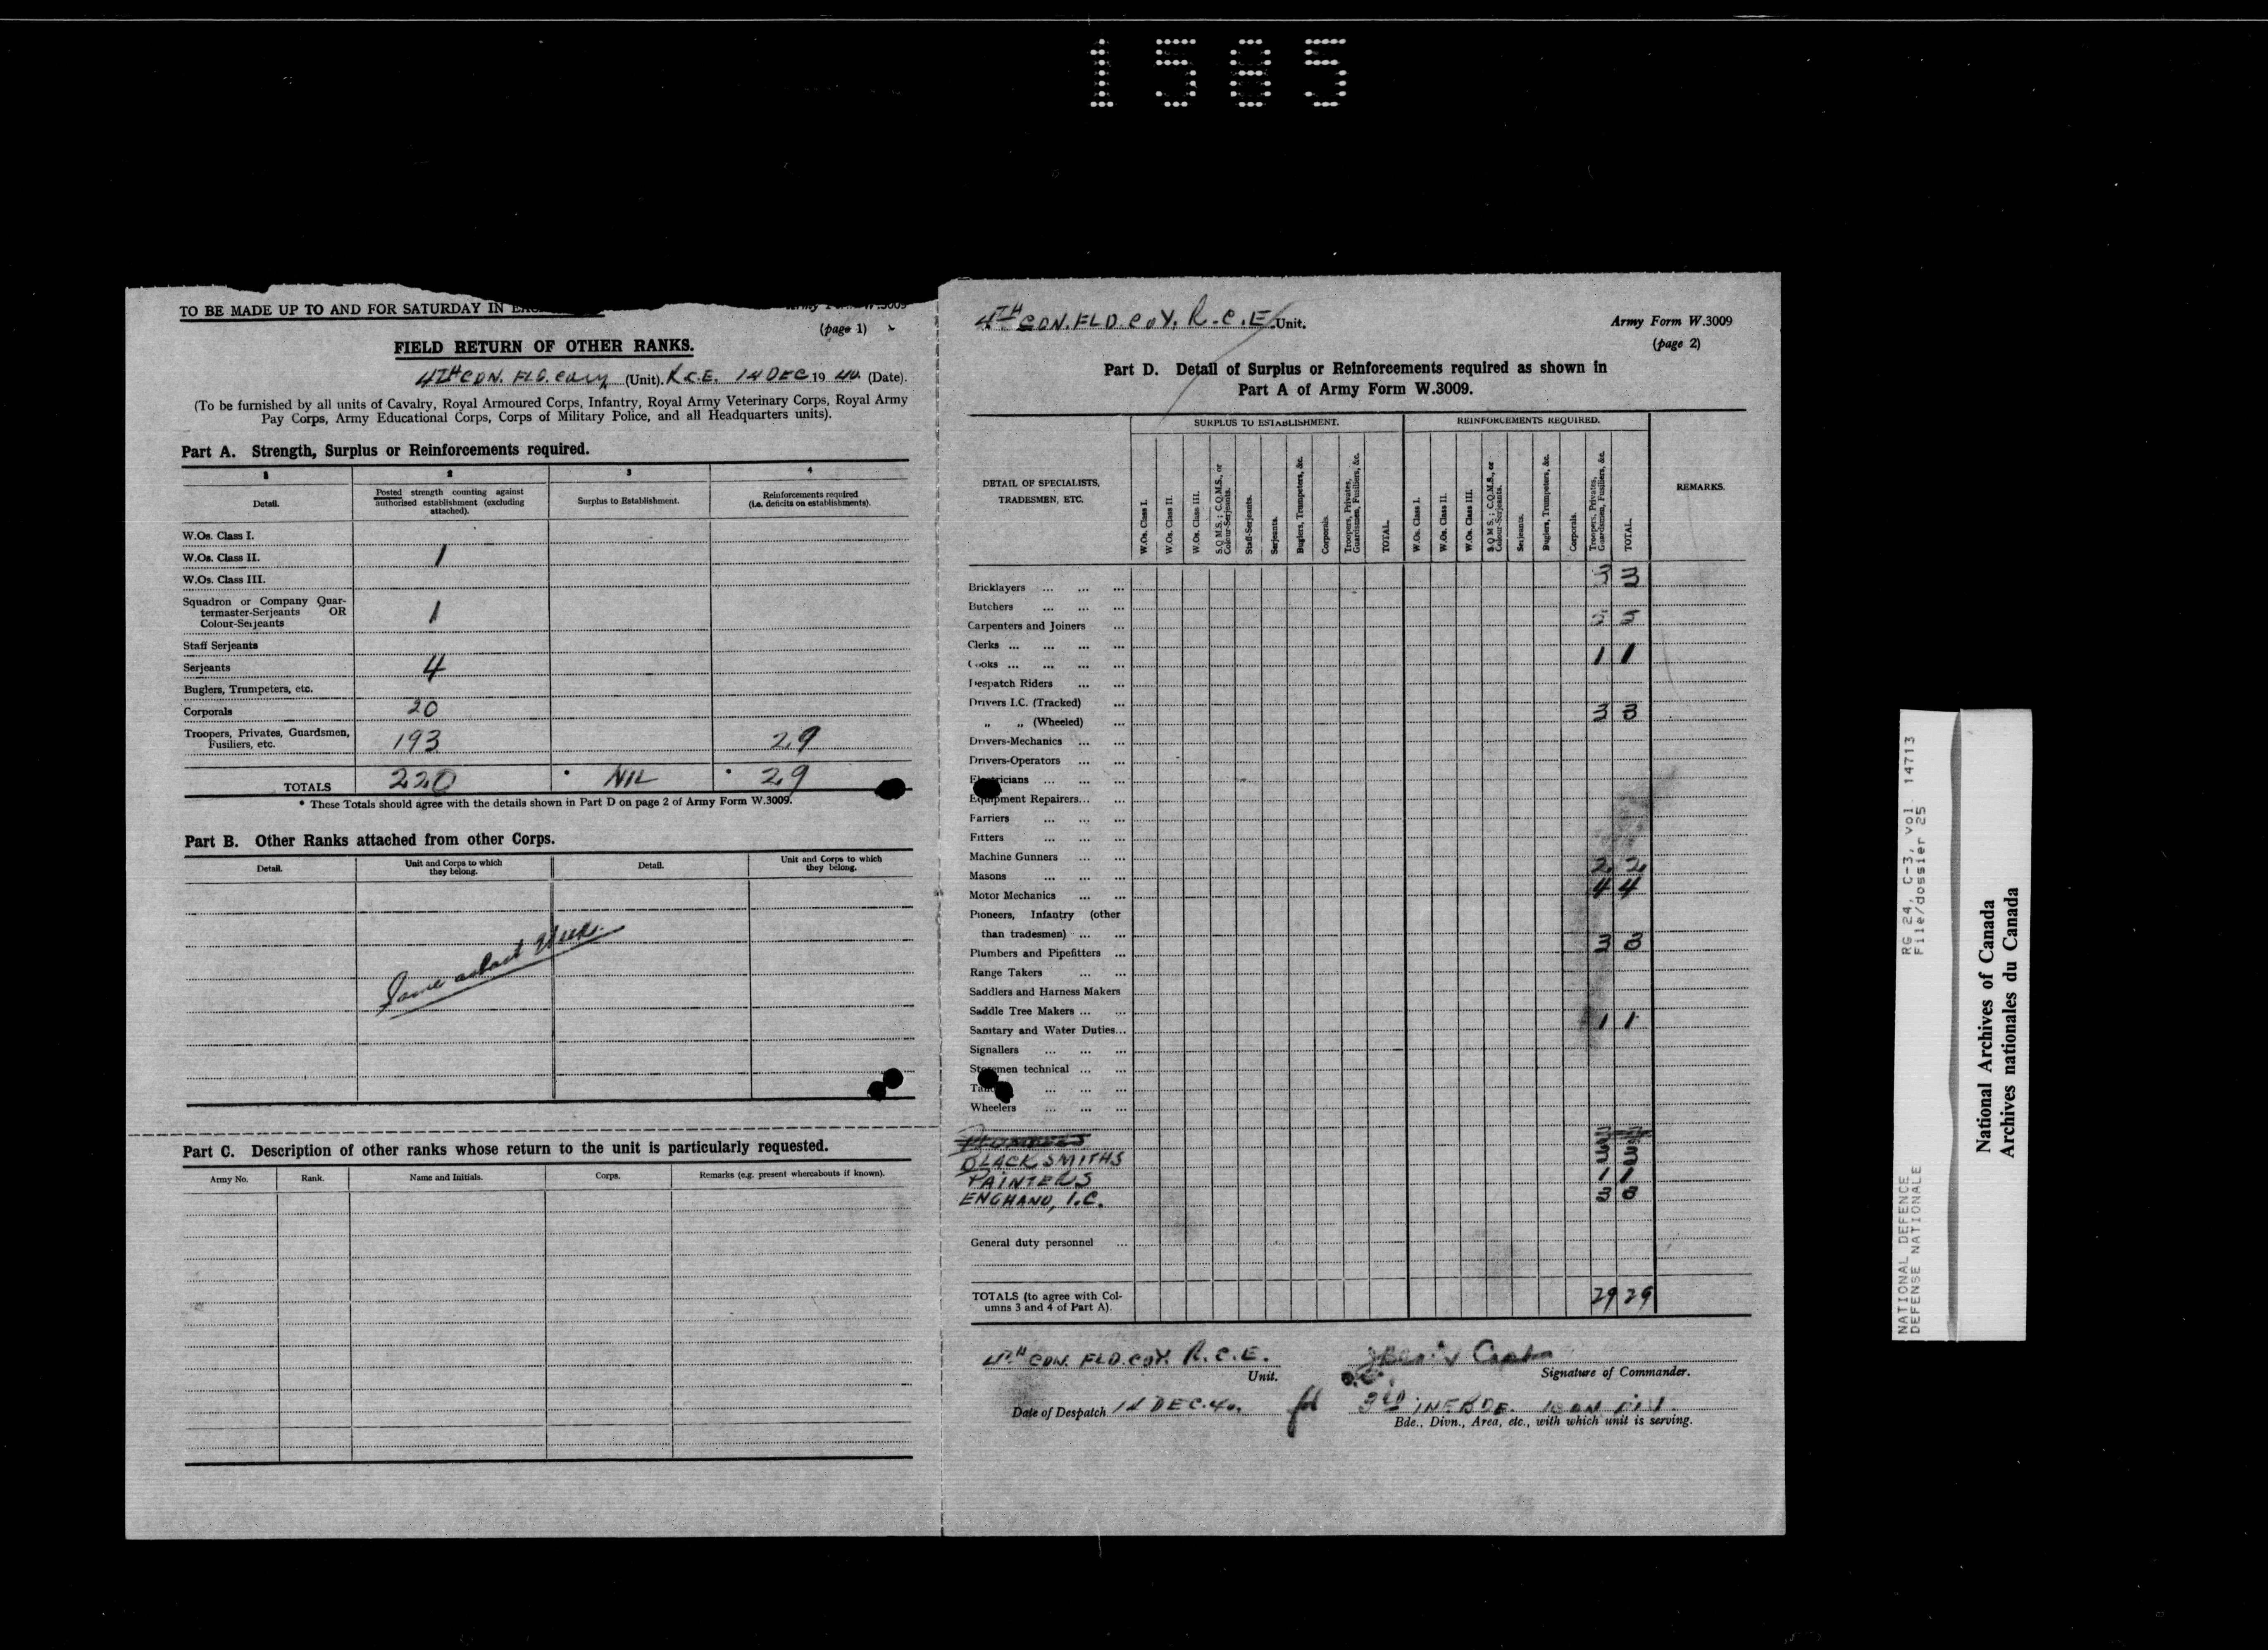 1585
TO BE MADE UP TO AND FOR SATURDAY IN
(page 1)
FIELD RETURN OF OTHER RANKS.
4TH CDN. FLD. Coy (Unit). R.C.E. 14 DEC 19 40 (Date).
(To be furnished by all units of Cavalry, Royal Armoured Corps, Infantry, Royal Army Veterinary Corps, Royal Army
Pay Corps, Army Educational Corps, Corps of Military Police, and all Headquarters units).
Part A. Strength, Surplus or Reinforcements required.
1 2 3 4
Detail. Posted strength counting against authorized establishment (excluding attached). Surplus to Establishment. Reinforcements required (i.e. deficits on establishments).
W.Os. Class I.
W.Os. Class II. 1
W.Os. Class III.
Squadron or Company Quar-
termaster-Serjeants OR
Colour-Serjeants 1
Staff Serjeants
Serjeants 4
Buglers, Trumpeters, etc.
Corporals 20
Troopers, Privates, Guardsmen,
Fusiliers, etc. 193 29
TOTALS 220 * NIL * 29
* These Totals should agree with the details shown in Part D on page 2 of Army Form W.3009.
Part B. Other Ranks attached from other Corps.
Detail. Unit and Corps to which they belong. Detail. Unit and Corps to which they belong.
Same as last Week.
Part C. Description of other ranks whose return to the unit is particularly requested.
Army No. Rank. Name and Initials. Corps. Remarks (e.g. present whereabouts if known).
4TH CDN. FLD. COY. R.C.E. Unit.
Army Form W.3009
(page 2)
Part D. Detail of Surplus or Reinforcements required as shown in
Part A of Army Form W.3009.
DETAIL OF SPECIALISTS, TRADESMEN, ETC.
SURPLUS TO ESTABLISHMENT.
W.Os. Class I.
W.Os. Class II.
W.Os. Class III.
S.Q.M.S.; C.Q.M.S., or Colour-Serjeants.
Staff-Serjeants.
Serjeants.
Buglers, Trumpeters, &c.
Corporals.
Troopers, Privates, Guardsmen, Fusiliers, &c.
TOTAL.
REINFORCEMENTS REQUIRED.
W.Os. Class I.
W.Os. Class II.
W.Os. Class III.
S.Q.M.S.; C.Q.M.S., or Colour-Serjeants.
Serjeants.
Buglers, Trumpeters, &c.
Corporals.
Troopers, Privates, Guardsmen, Fusiliers, &c.
TOTAL.
REMARKS.
Bricklayers ... ... ... 3 3
Butchers ... ... ...
Carpenters and Joiners ... 5 5
Clerks ... ... ... ...
Cooks ... ... ... ... 1 1
Despatch Riders ... ...
Drivers I.C. (Tracked) ...
„ „ (Wheeled) ... 3 3
Drivers-Mechanics ... ...
Drivers-Operators ... ...
Electricians ... ... ...
Equipment Repairers... ...
Farriers ... ... ...
Fitters ... ... ...
Machine Gunners ... ...
Masons ... ... ... 2 2
Motor Mechanics ... ... 4 4
Pioneers, Infantry (other
than tradesmen) ... ...
Plumbers and Pipefitters ... 3 3
Range Takers ... ...
Saddlers and Harness Makers
Saddle Tree Makers ... ...
Sanitary and Water Duties... 1 1
Signallers ... ... ...
Storemen technical ... ...
Wheelers ... ... ...
BLACKSMITHS 3 3
PAINTERS 1 1
ENGHAND, I.C. 3 3
General duty personnel ...
TOTALS (to agree with Col-
umns 3 and 4 of Part A). 29 29
4TH CDN. FLD. COY. R.C.E.
Unit.
Capt
Signature of Commander.
Date of Despatch 14 DEC. 40.
3RD INF BDE.
Bde., Divn., Area, etc., with which unit is serving.
NATIONAL DEFENCE RG 24, C-3, vol. 14713
DEFENSE NATIONALE File/dossier 25
National Archives of Canada
Archives nationales du Canada